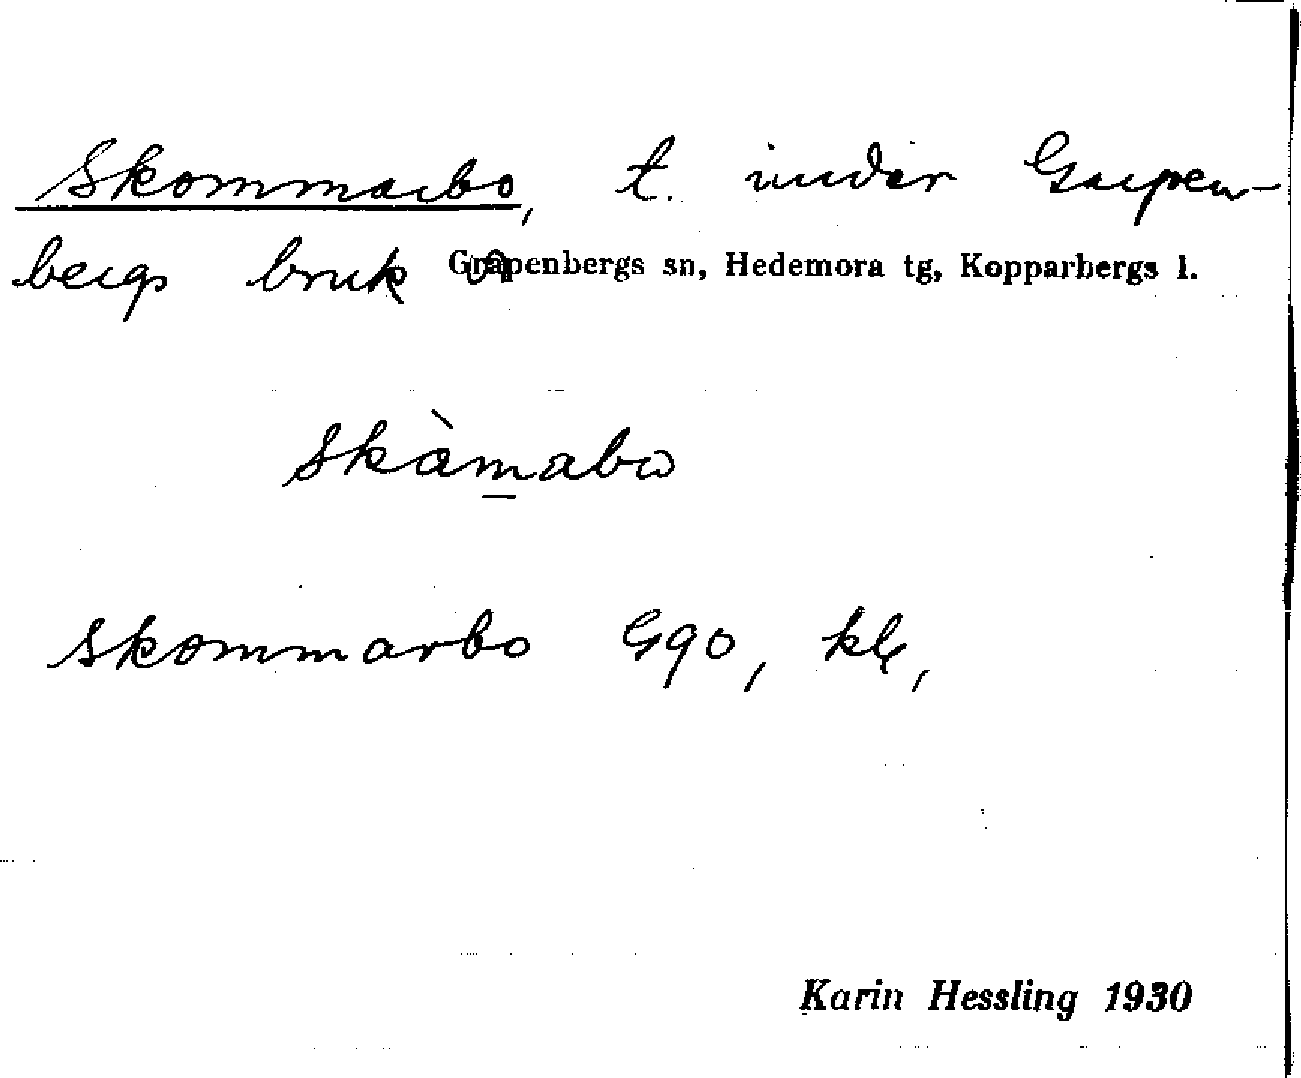 Skommarbo, t. under Garpen-
bergs bruk Grapenbergs sn, Hedemora tg, Kopparbergs l.
skàmabω
skommarbo Ggo, kG,
Karin Hessling 1930